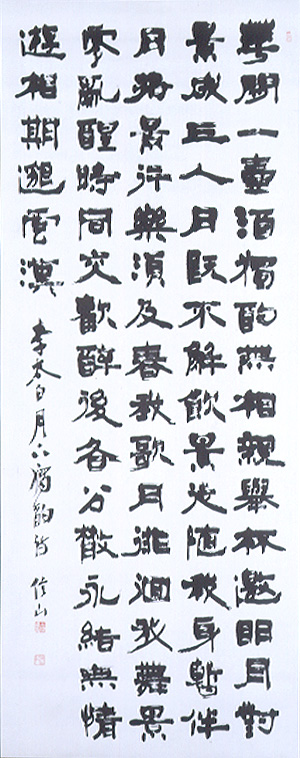 華間一壺酒獨酌無相親舉杯邀明月對
景成三人月既不解飲景徒隨我身暫伴
月將景行樂須及春我歌月徘徊我舞景
零亂醒時同交歡醉後各分散永結無情
遊相期邈雲漢
李太白月下獨酌詩 信山